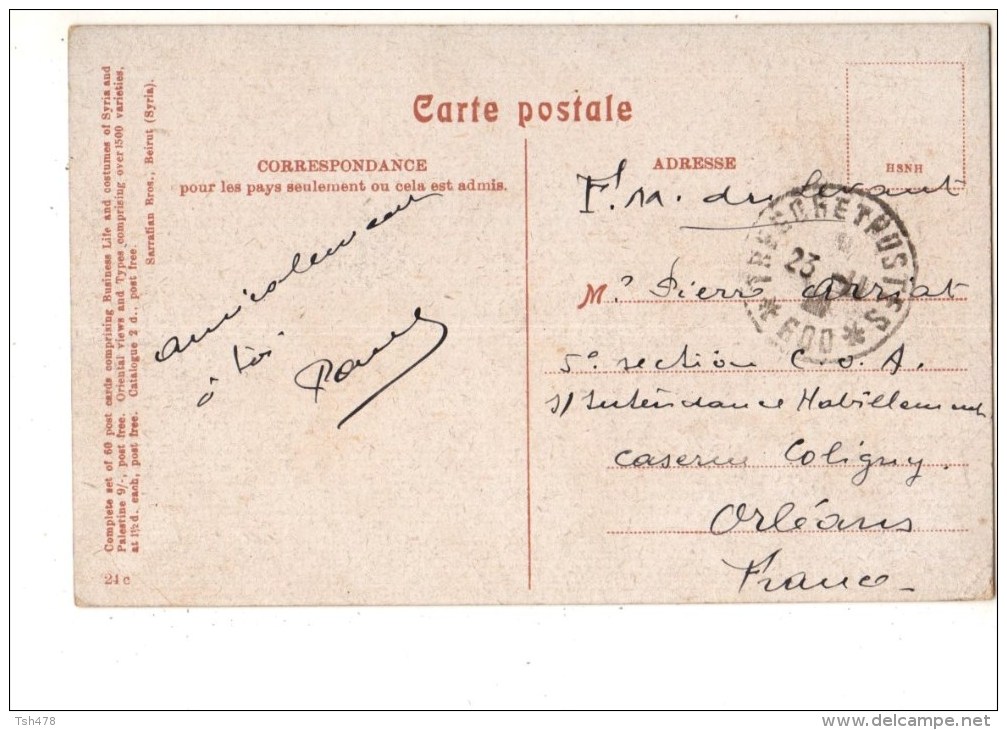 Carte postale
CORRESPONDANCE
pour les pays seulement ou cela est admis.
ADRESSE
HSNH
Complete set of 60 post cards comprising Business Life and costumes of Syria and
Palestine 9/-, post free. Oriental views and Types comprising over 1500 varieties,
at 1½d. each, post free. Catalogue 2 d., post free.
Sarrafian Bros., Beirut (Syria).
24 c
amicalement
à toi
F.M. du Levant
TRESOR ET POSTES
23
* 600 *
Mr Pierre Arriat
5e section C.O.A.
s/ Intendance Habillement
caserne Coligny.
Orléans
France
Tsh478
www.delcampe.net